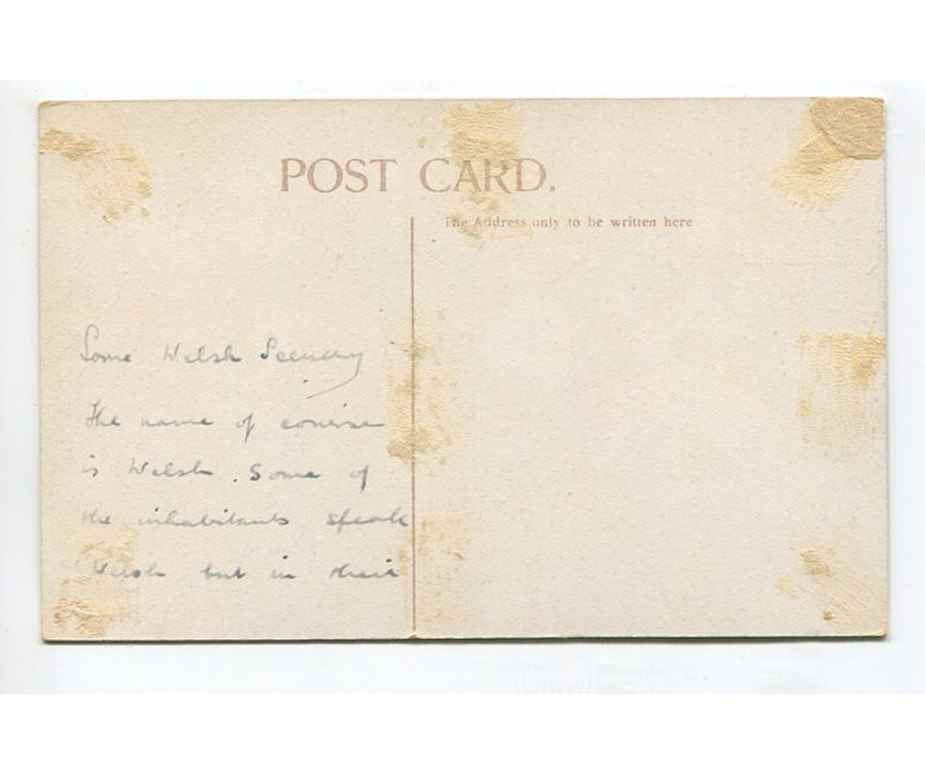 POST CARD.
The Address only to be written here
Some Welsh Scenery
The name of course
is Welsh. Some of
the inhabitants speak
Welsh but in their